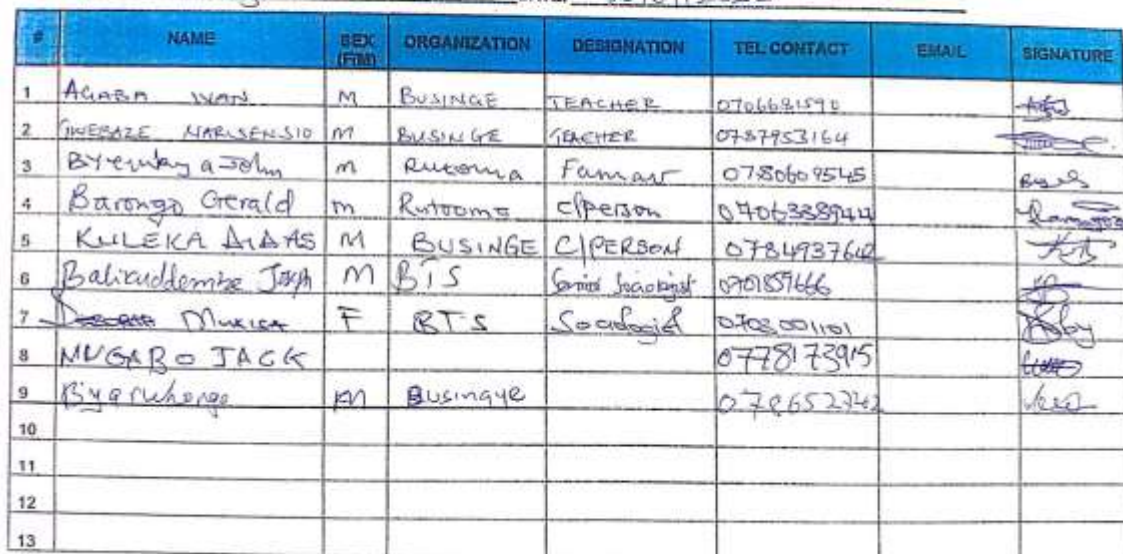 # NAME SEX (F/M) ORGANIZATION DESIGNATION TEL CONTACT EMAIL SIGNATURE
1 AGABA IVAN M BUSINGE TEACHER 0706681590
2 TWEBAZE NARSENSIO M BUSINGE TEACHER 0787953164
3 John M Rutooma 0780609545
4 Barongo Gerald M Rutooma C/person 0706338944
5 KULEKA M BUSINGE C/PERSON
6 Balikuddembe Joseph M BTS Senior Sociologist
7 MUKISA F BTS Sociologist 0703001101
8 MUGABO JACK 0778173915
9 M Businqye
10
11
12
13